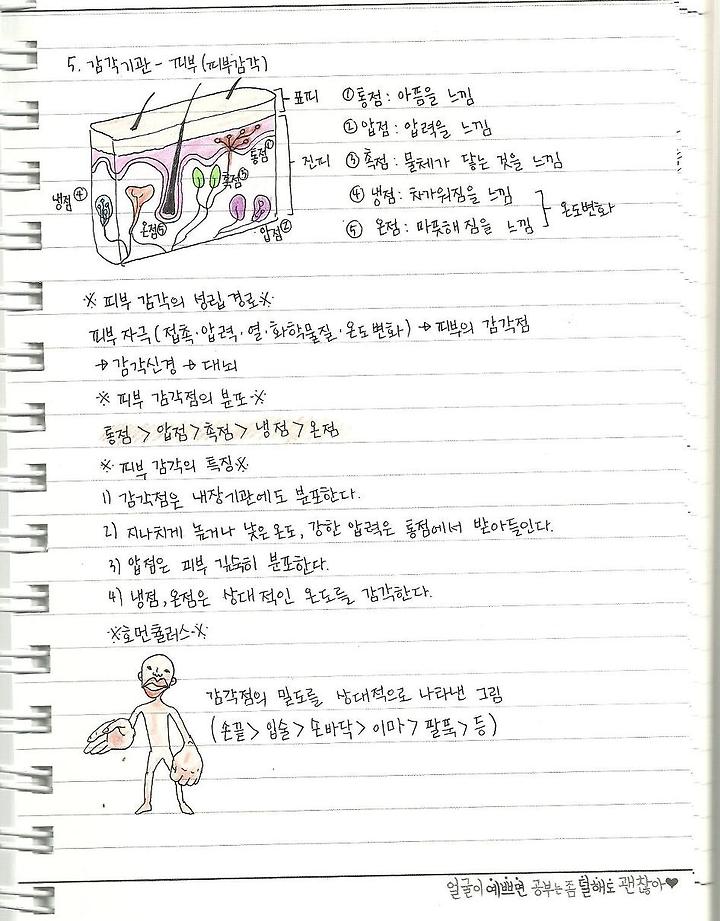 5. 감각기관 - 피부 (피부감각)
표피
진피
통점①
촉점③
냉점④
온점⑤
압점②
① 통점 : 아픔을 느낌
② 압점 : 압력을 느낌
③ 촉점 : 물체가 닿는 것을 느낌
④ 냉점 : 차가워짐을 느낌
⑤ 온점 : 따뜻해짐을 느낌
온도변화
※ 피부 감각의 성립 경로※
피부 자극 (접촉·압력·열·화학물질·온도변화) → 피부의 감각점
→ 감각신경 → 대뇌
※ 피부 감각점의 분포 ※
통점 > 압점 > 촉점 > 냉점 > 온점
※ 피부 감각의 특징※
1) 감각점은 내장기관에도 분포한다.
2) 지나치게 높거나 낮은 온도, 강한 압력은 통점에서 받아들인다.
3) 압점은 피부 깊숙히 분포한다.
4) 냉점, 온점은 상대적인 온도를 감각한다.
※호먼쿨러스※
감각점의 밀도를 상대적으로 나타낸 그림
(손끝 > 입술 > 손바닥 > 이마 > 팔뚝 > 등)
얼굴이 예쁘면 공부는 좀 덜해도 괜찮아♥